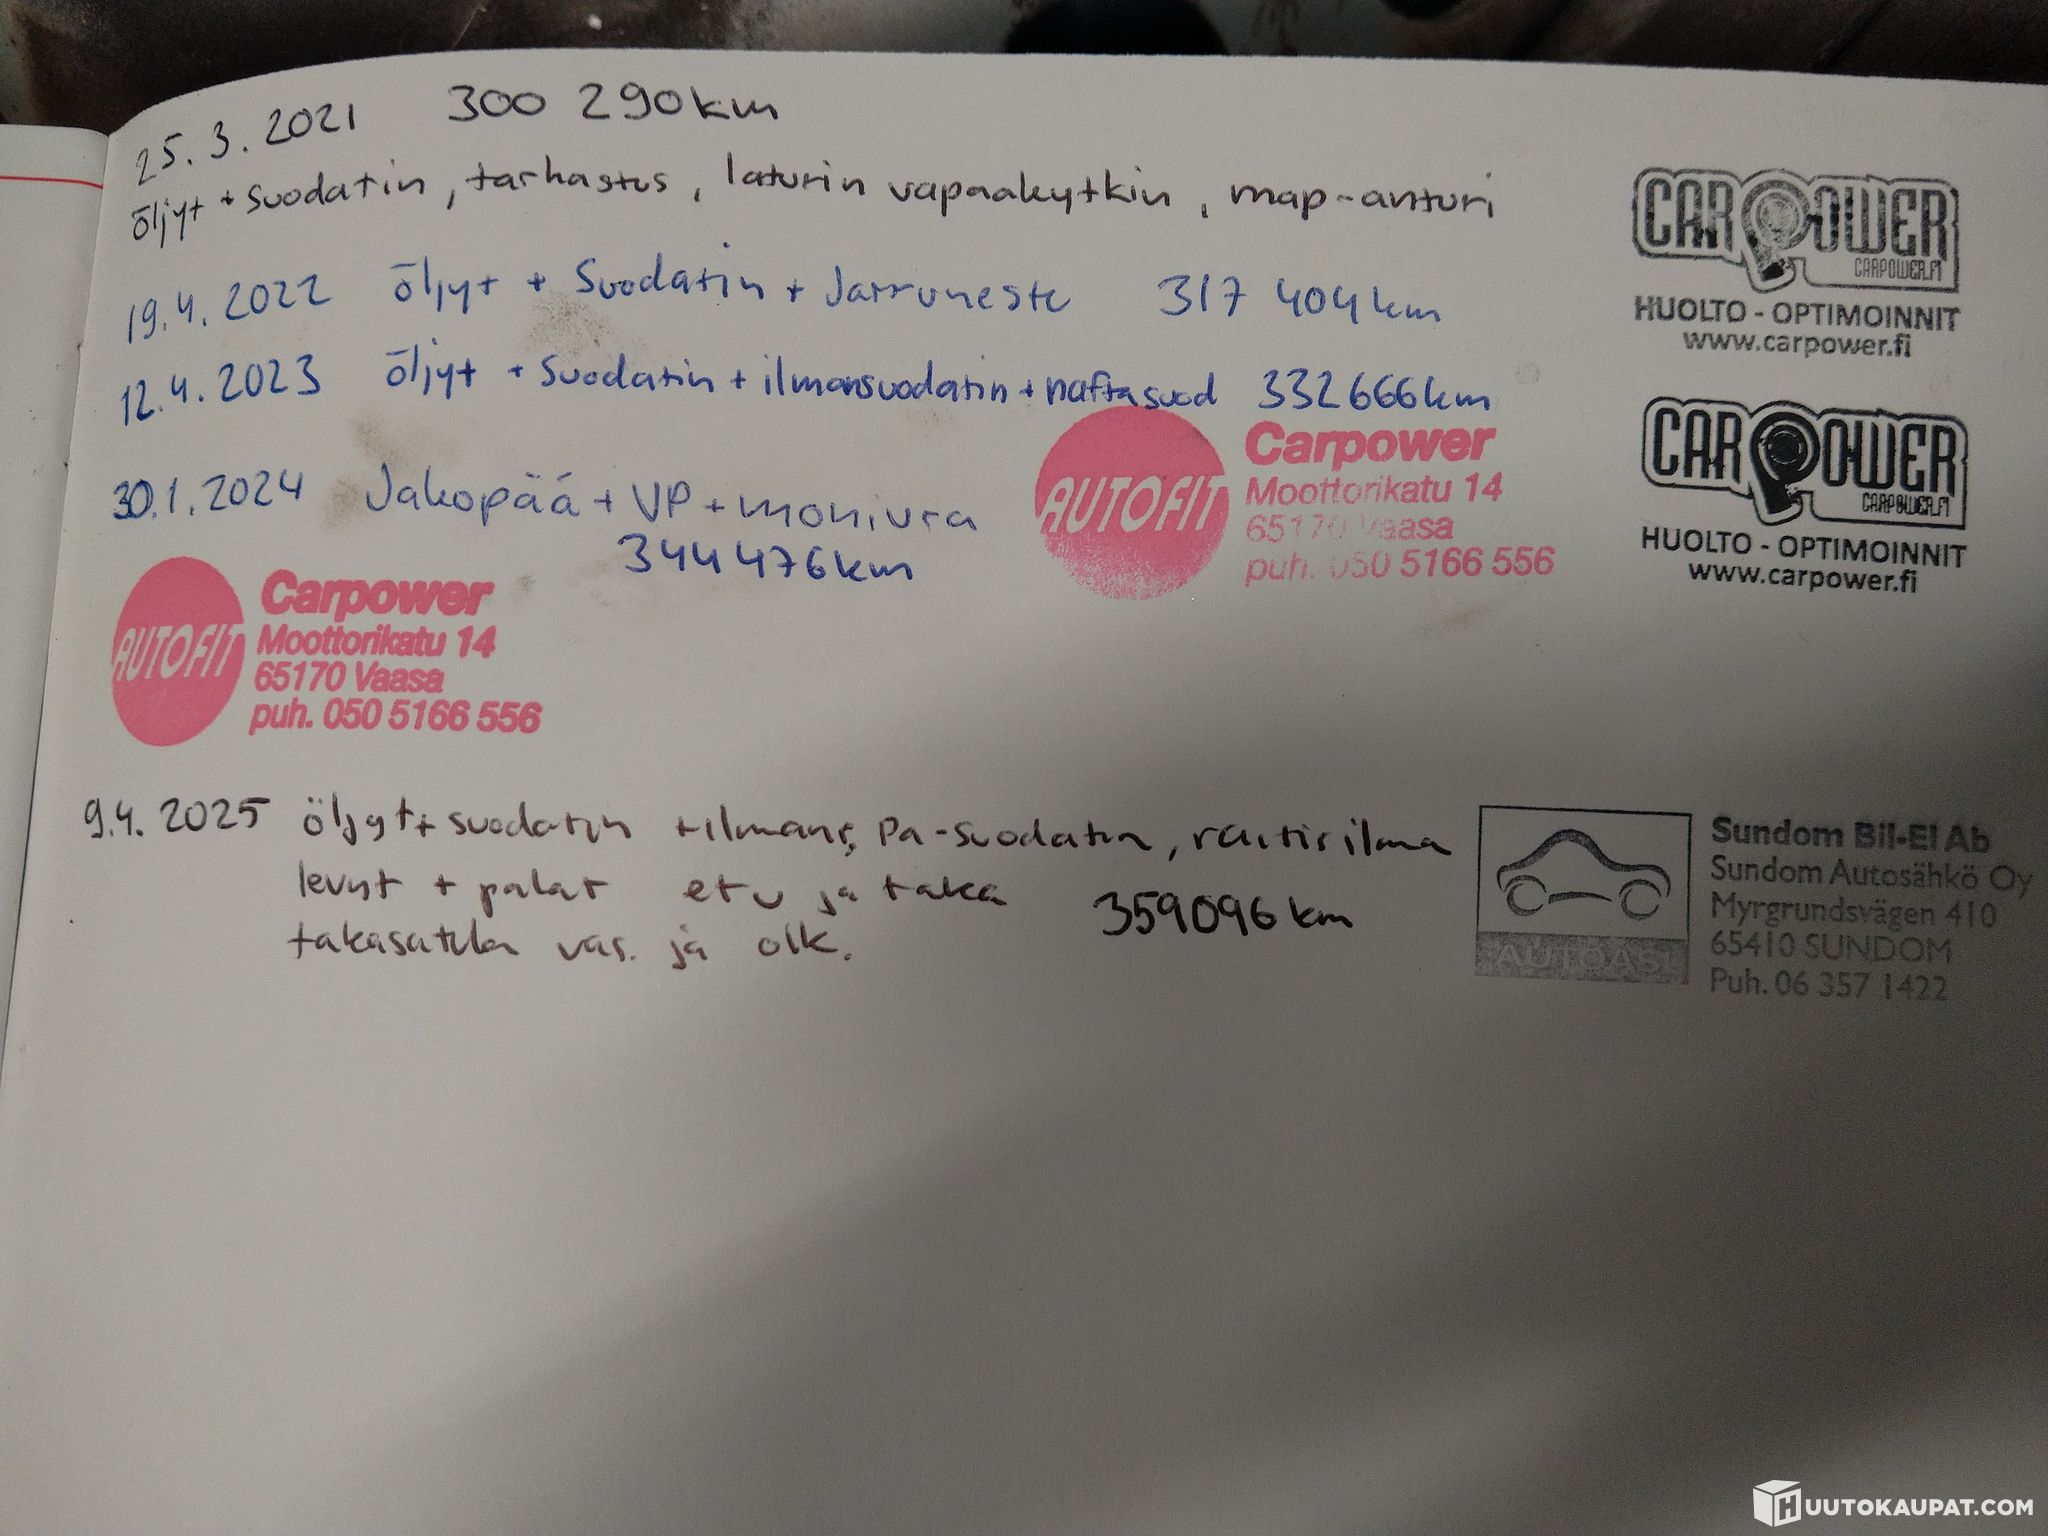 25.3.2021 300 290km
öljyt + suodatin, tarkastus, laturin vapaakytkin, map-anturi
CARPOWER
CARPOWER.FI
HUOLTO - OPTIMOINNIT
www.carpower.fi
19.4.2022 öljyt + Suodatin + Jarruneste 317 404km
12.4.2023 öljyt + Suodatin + ilmansuodatin + naftasuod 332666km
CARPOWER
CARPOWER.FI
HUOLTO - OPTIMOINNIT
www.carpower.fi
AUTOFIT
Carpower
Moottorikatu 14
65170 Vaasa
puh. 050 5166 556
30.1.2024 Jakopää + VP + moniura
344 476km
AUTOFIT
Carpower
Moottorikatu 14
65170 Vaasa
puh. 050 5166 556
9.4.2025 öljyt + suodatin + ilmans, pa-suodatin, raitisilma
levyt + palat etu ja taka 359096km
takasatula vas. ja oik.
AUTOASI
Sundom Bil-El Ab
Sundom Autosähkö Oy
Myrgrundsvägen 410
65410 SUNDOM
Puh. 06 357 1422
HUUTOKAUPAT.COM